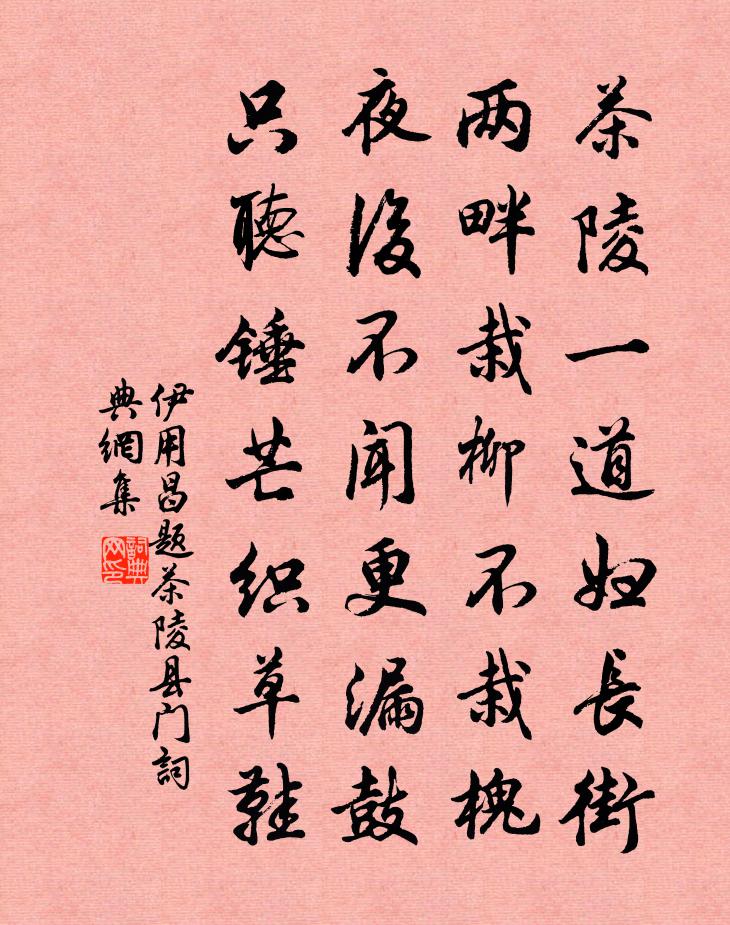 茶陵一道妇長街
两畔栽柳不栽槐
夜後不闻更漏鼓
只聽锤芒织草鞋
伊用昌题茶陵县门詞
典網集
詞典
网印